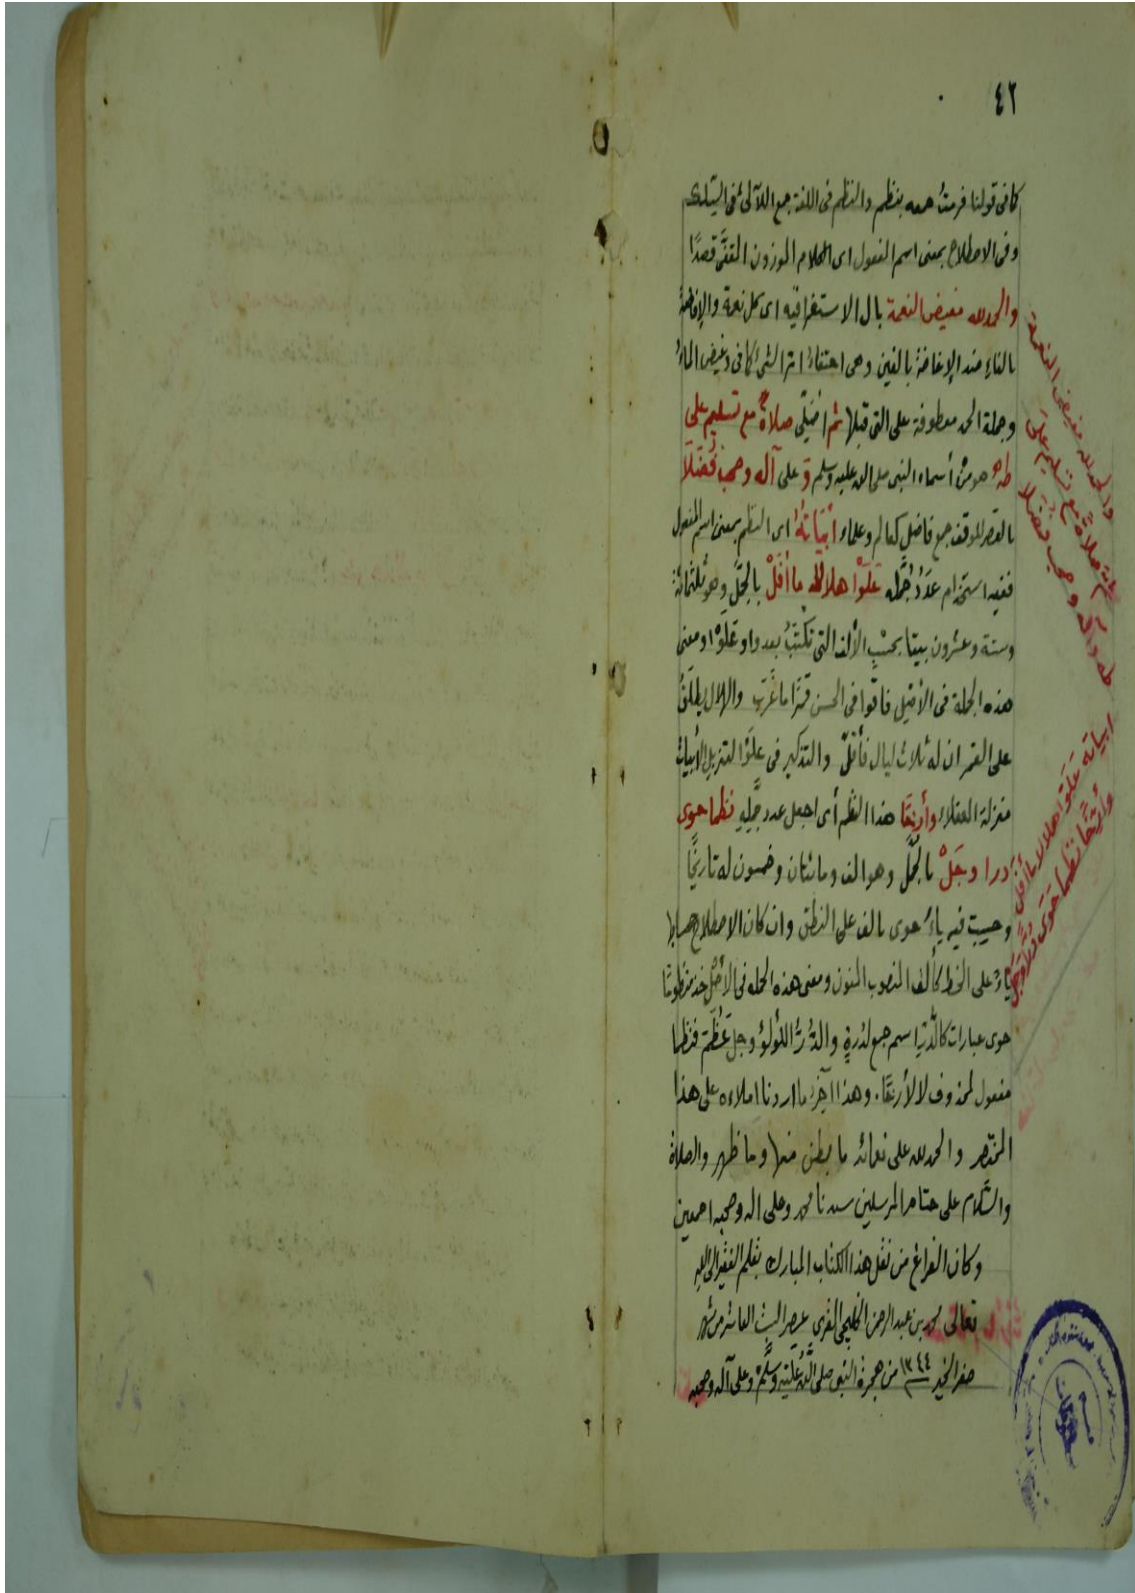 ٤٢
كما فى قولنا فرمت جمعه بنظم والنظم فى اللغة جمع اللآلئ فى السلك
وفى الاصطلاح بمعنى اسم المفعول اى الكلام الموزون المقفّى قصدًا
والحمد لله مفيض النعمة بال الاستغراقيه اى كل نعمة والإفاضة
بالفاء ضد الإغاضة بالغين وهى اختفاء اثر الشئ كما فى وغيض الماءُ
وجملة الحمد معطوفة على التى قبلها ثم اصَلّى صلاةً مع تسليم على
طه هو من أسماء النبى صلى الله عليه وسلم وَ على آله وصحب فُضَلَا
بالقصر للوقف جمع فاضل كعالم وعلماء ابْيَاتُهُ اى النظم بمعنى اسم المفعول
ففيه استخدام عَدَدُ جُمَّله عَلَوْا هلالًا ما أَفَلْ بالجمَّل وهو ثلثمائة
وستة وعشرون بيتا بحسْب الألف التى تكتبُ بعد واو عَلَوْا ومعنى
هذه الجملة فى الأصْل فاقوا فى الحسن قمرًا ما غَرَب والهلال يطلَقُ
على القمر ان له ثلاث ليال فأقلّ والتذكير فى علَوْا لتنزيل الأبيات
منزلة العقلاء وأرخًا هذا النظم أى اجعل عدد جُمَّلِهِ نظما حوى
درا وجَلْ بالجمَّل وهو الف ومائتان وخمسون له تاريخًا
وحسبت فيه ياء حوى بالف على النطق وان كان الاصطلاح حسابها
ياءً على الخط كألف المنصوب المنون ومعنى هذه الجمله فى الأصْل خذ منظومًا
حوى عبارات كالدُّر اسم جمع لدُرةٍ والدُّرُّ اللؤلؤ وجل عَظُمَ فنظما
مفعول لمحذوف لا لأرخًا. وهذا آخر ما اردنا املاءه على هذا
المختصر والحمد لله على نعمائه ما بطن منها وما ظهر والصلاة
والسَّلام على ختام المرسلين سيدنا محمد وعلى اله وصحبه اجمعين
وكان الفراغ من نقل هذا الكتاب المبارك بقلم الفقير الى الله
تعالى محمد بن عبد الرحمن الخليجى المقرى عصر السبت العاشر من شهر
صفر الخير ١٣٤٤ من هجرة النبى صلى اللَّه عليْه وسلَّم وعلى آله وصحبه
والحمد لله مفيض النعمة
ثم صلاةً مع تسليم على
طه وآله وصحب فُضَلا
ابياته عَلَوْا هلالا ما أَفَلْ
وأرِّخًا نظما حوى دُرًّا وجَلْ
قسم